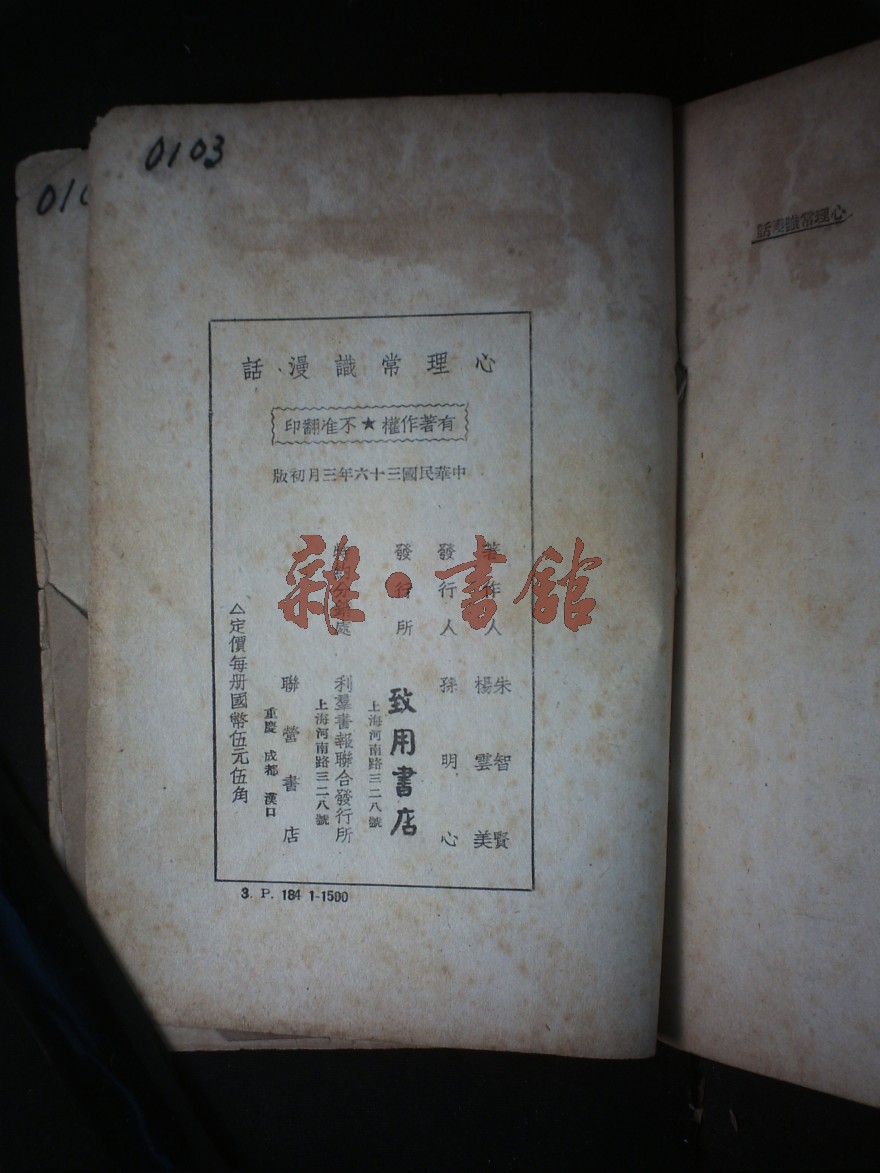 0103
010
心理常識漫話
有著作權★不准翻印
中華民國三十六年三月初版
著作人 朱智賢 楊雲美
發行人 孫明心
發行所 致用書店
上海河南路三二八號
特約分銷處 利羣書報聯合發行所
上海河南路三二八號
聯營書店
重慶 成都 漢口
△定價每册國幣伍元伍角
3. P. 184 1-1500
雜·書館
心理常識漫話